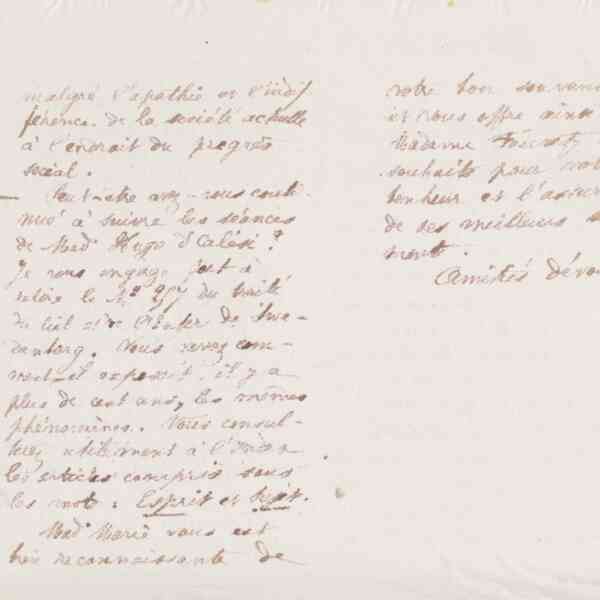 malgré l'apathie et l'indif
férence de la société actuelle
à l'endroit du progrès
social.
— Peut-être avez-vous conti-
nué à suivre les séances
de Mad. Hugo d'Alési ?
Je vous engage fort à
relire le N° du traité
du Ciel et de l'Enfer de Swe-
denborg. Vous verrez com-
ment il exposait, il y a
plus de cent ans, les mêmes
phénomènes. Vous consul-
terez utilement à l'Index
les articles compris sous
les mots : Esprit et
Mad. Marie vous est
bien reconnaissante de
votre bon souvenir
et vous offre ainsi
Madame
souhaits pour votre
bonheur et l'assur
de ses meilleurs
ment.
Amitiés dévou